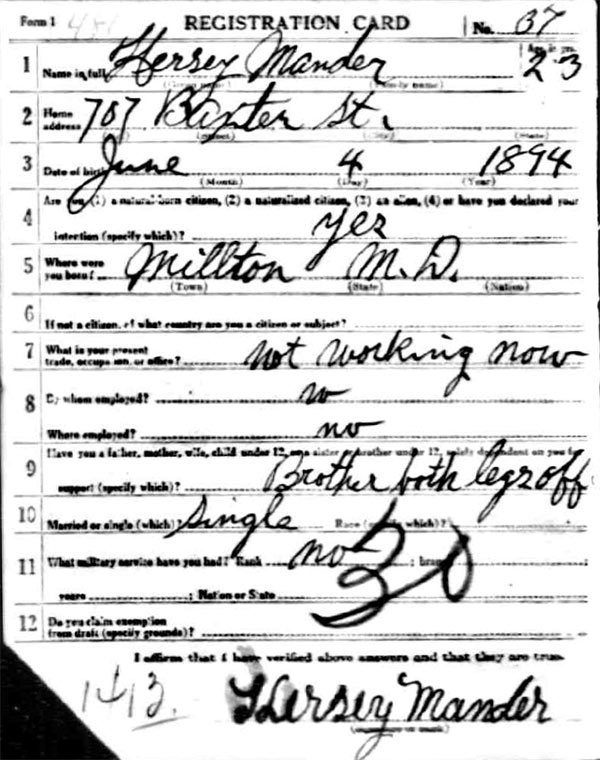 Form 1 REGISTRATION CARD No. 37
1 Name in full Hersey Mander Age in yrs. 23
(Given name) (Family name)
2 Home address 707 Baxter St.
(Street) (City) (State)
3 Date of birth June 4 1894
(Month) (Day) (Year)
4 Are you (1) a natural-born citizen, (2) a naturalized citizen, (3) an alien, (4) or have you declared your
intention (specify which)? yes
5 Where were you born? Millton M.D.
(Town) (State) (Nation)
6 If not a citizen, of what country are you a citizen or subject?
7 What is your present trade, occupation, or office? not working now
8 By whom employed? no
Where employed? no
9 Have you a father, mother, wife, child under 12, or a sister or brother under 12, solely dependent on you for
support (specify which)? Brother both legs off
10 Married or single (which)? Single Race (specify which)?
11 What military service have you had? Rank no ; branch
years ; Nation or State
12 Do you claim exemption from draft (specify grounds)?
I affirm that I have verified above answers and that they are true.
1413. Hersey Mander
(Signature or mark)